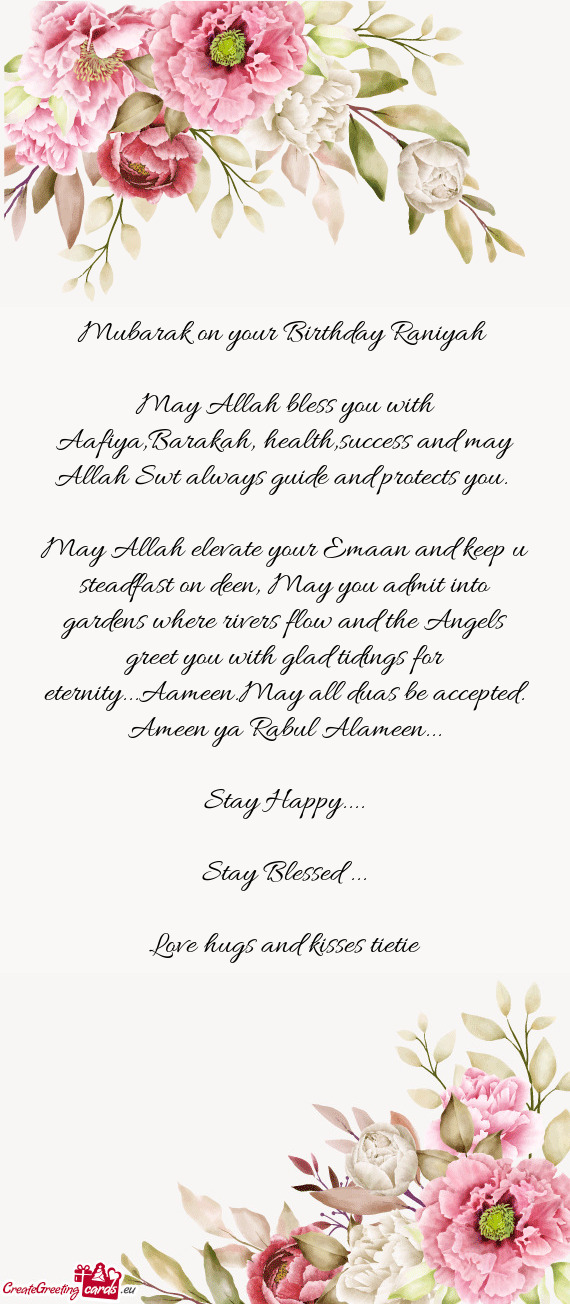 Mubarak on your Birthday Raniyah
May Allah bless you with
Aafiya,Barakah, health,success and may
Allah Swt always guide and protects you.
May Allah elevate your Emaan and keep u
steadfast on deen, May you admit into
gardens where rivers flow and the Angels
greet you with glad tidings for
eternity...Aameen.May all duas be accepted.
Ameen ya Rabul Alameen...
Stay Happy....
Stay Blessed ...
Love hugs and kisses tietie
CreateGreeting cards .eu